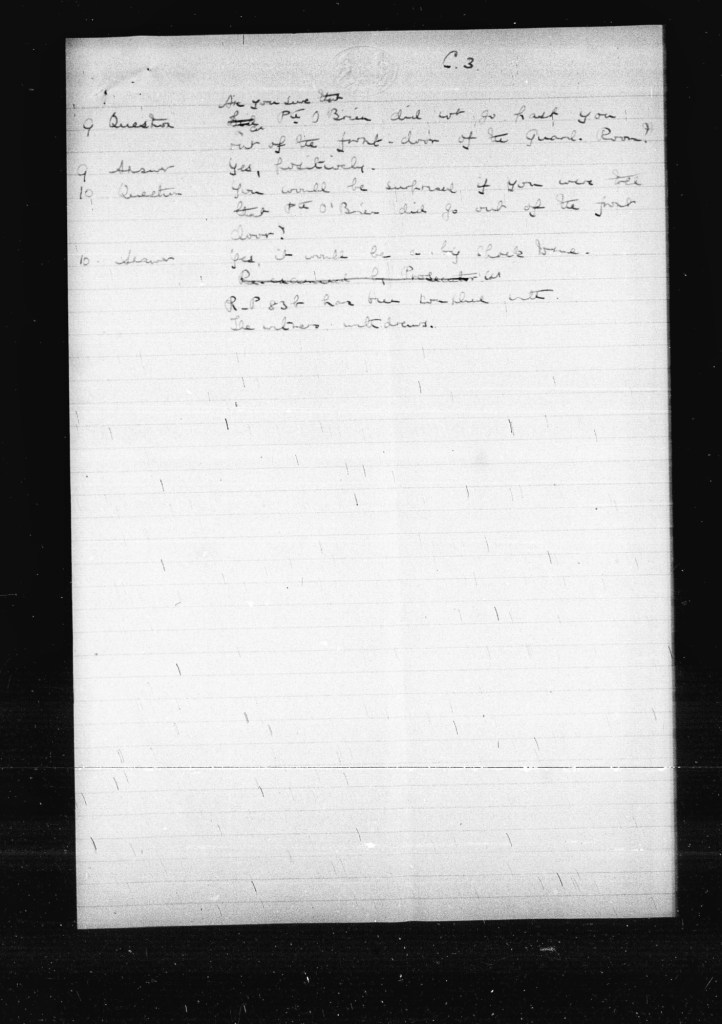 C.3
Are you sure that
9 Question Pte O'Brien did not go past you
out of the front-door of the Guard-Room?
9 Answer Yes, positively.
10 Question You would be surprised if you were told
that Pte O'Brien did go out of the front
door?
10 Answer Yes, it would be a big shock to me.
Re-examined by Prosecutor
R.P 83 has been complied with.
The witness withdraws.